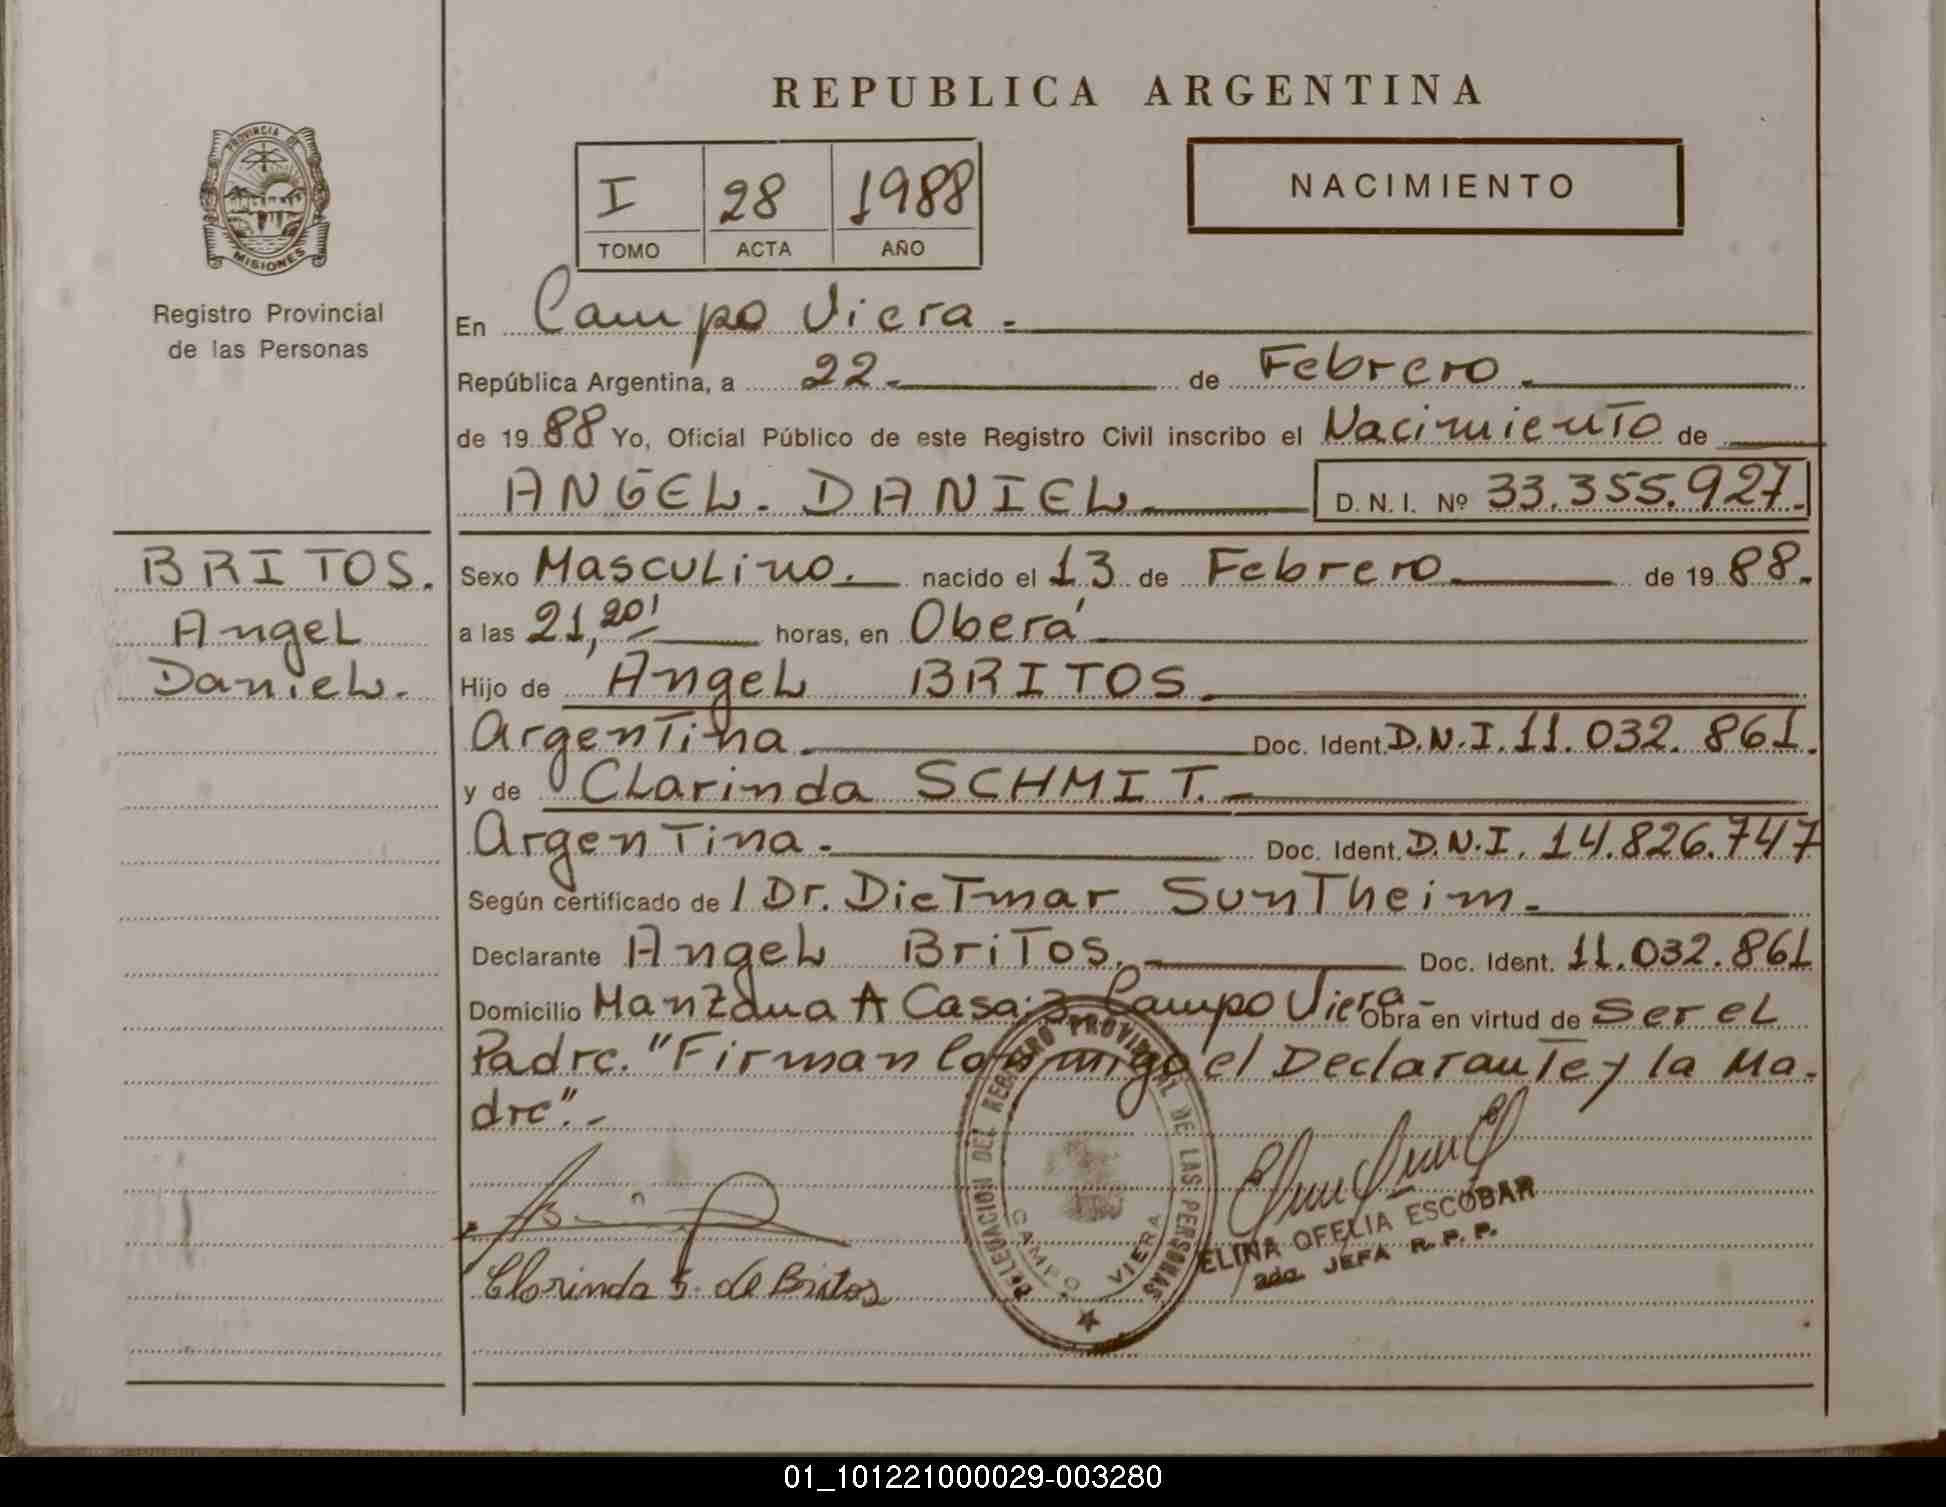 REPUBLICA ARGENTINA
PROVINCIA DE MISIONES
Registro Provincial
de las Personas
I 28 1988
TOMO ACTA AÑO
NACIMIENTO
En Campo Viera.-
República Argentina, a 22.- de Febrero.-
de 1988 Yo, Oficial Público de este Registro Civil inscribo el Nacimiento de
ANGEL. DANIEL D. N. I. Nº 33.355.927.-
BRITOS.
Angel
Daniel.
Sexo Masculino. nacido el 13 de Febrero de 1988.
a las 21,20' horas, en Oberá
Hijo de Angel BRITOS.
Argentina. Doc. Ident. D.N.I. 11.032.861.
y de Clarinda SCHMIT.-
Argentina.- Doc. Ident. D.N.I. 14.826.747
Según certificado de / Dr. Dietmar Suntheim.-
Declarante Angel Britos.- Doc. Ident. 11.032.861
Domicilio Manzana A Casa: 3 Campo Viera- Obra en virtud de Ser el
Padre. "Firman conmigo el Declarante y la Ma-
dre".-
DELEGACION DEL REGISTRO PROVINCIAL DE LAS PERSONAS
CAMPO VIERA
Clorinda S. de Britos
ELINA OFELIA ESCOBAR
2da. JEFA R. P. P.
01_101221000029-003280